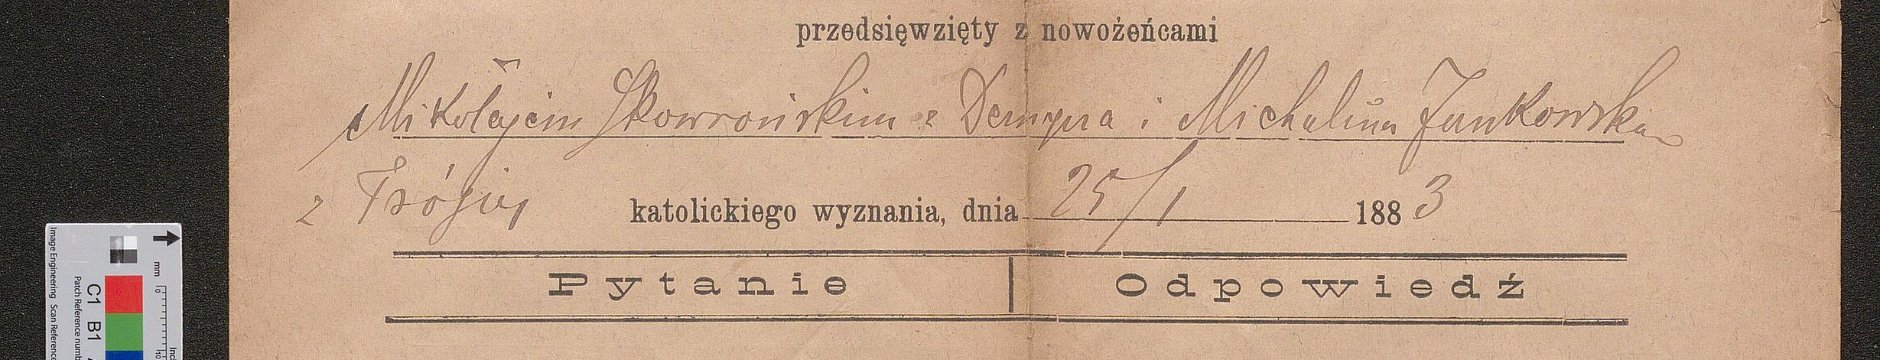 przedsięwzięty z nowożeńcami
Mikołajem Skowrońskim z Dempna i Michaliną Jankowską
z Trójcy katolickiego wyznania, dnia 25/1 1883
Pytanie Odpowiedź
Image Engineering Scan Reference
Patch Reference numb
C1 B1
mm